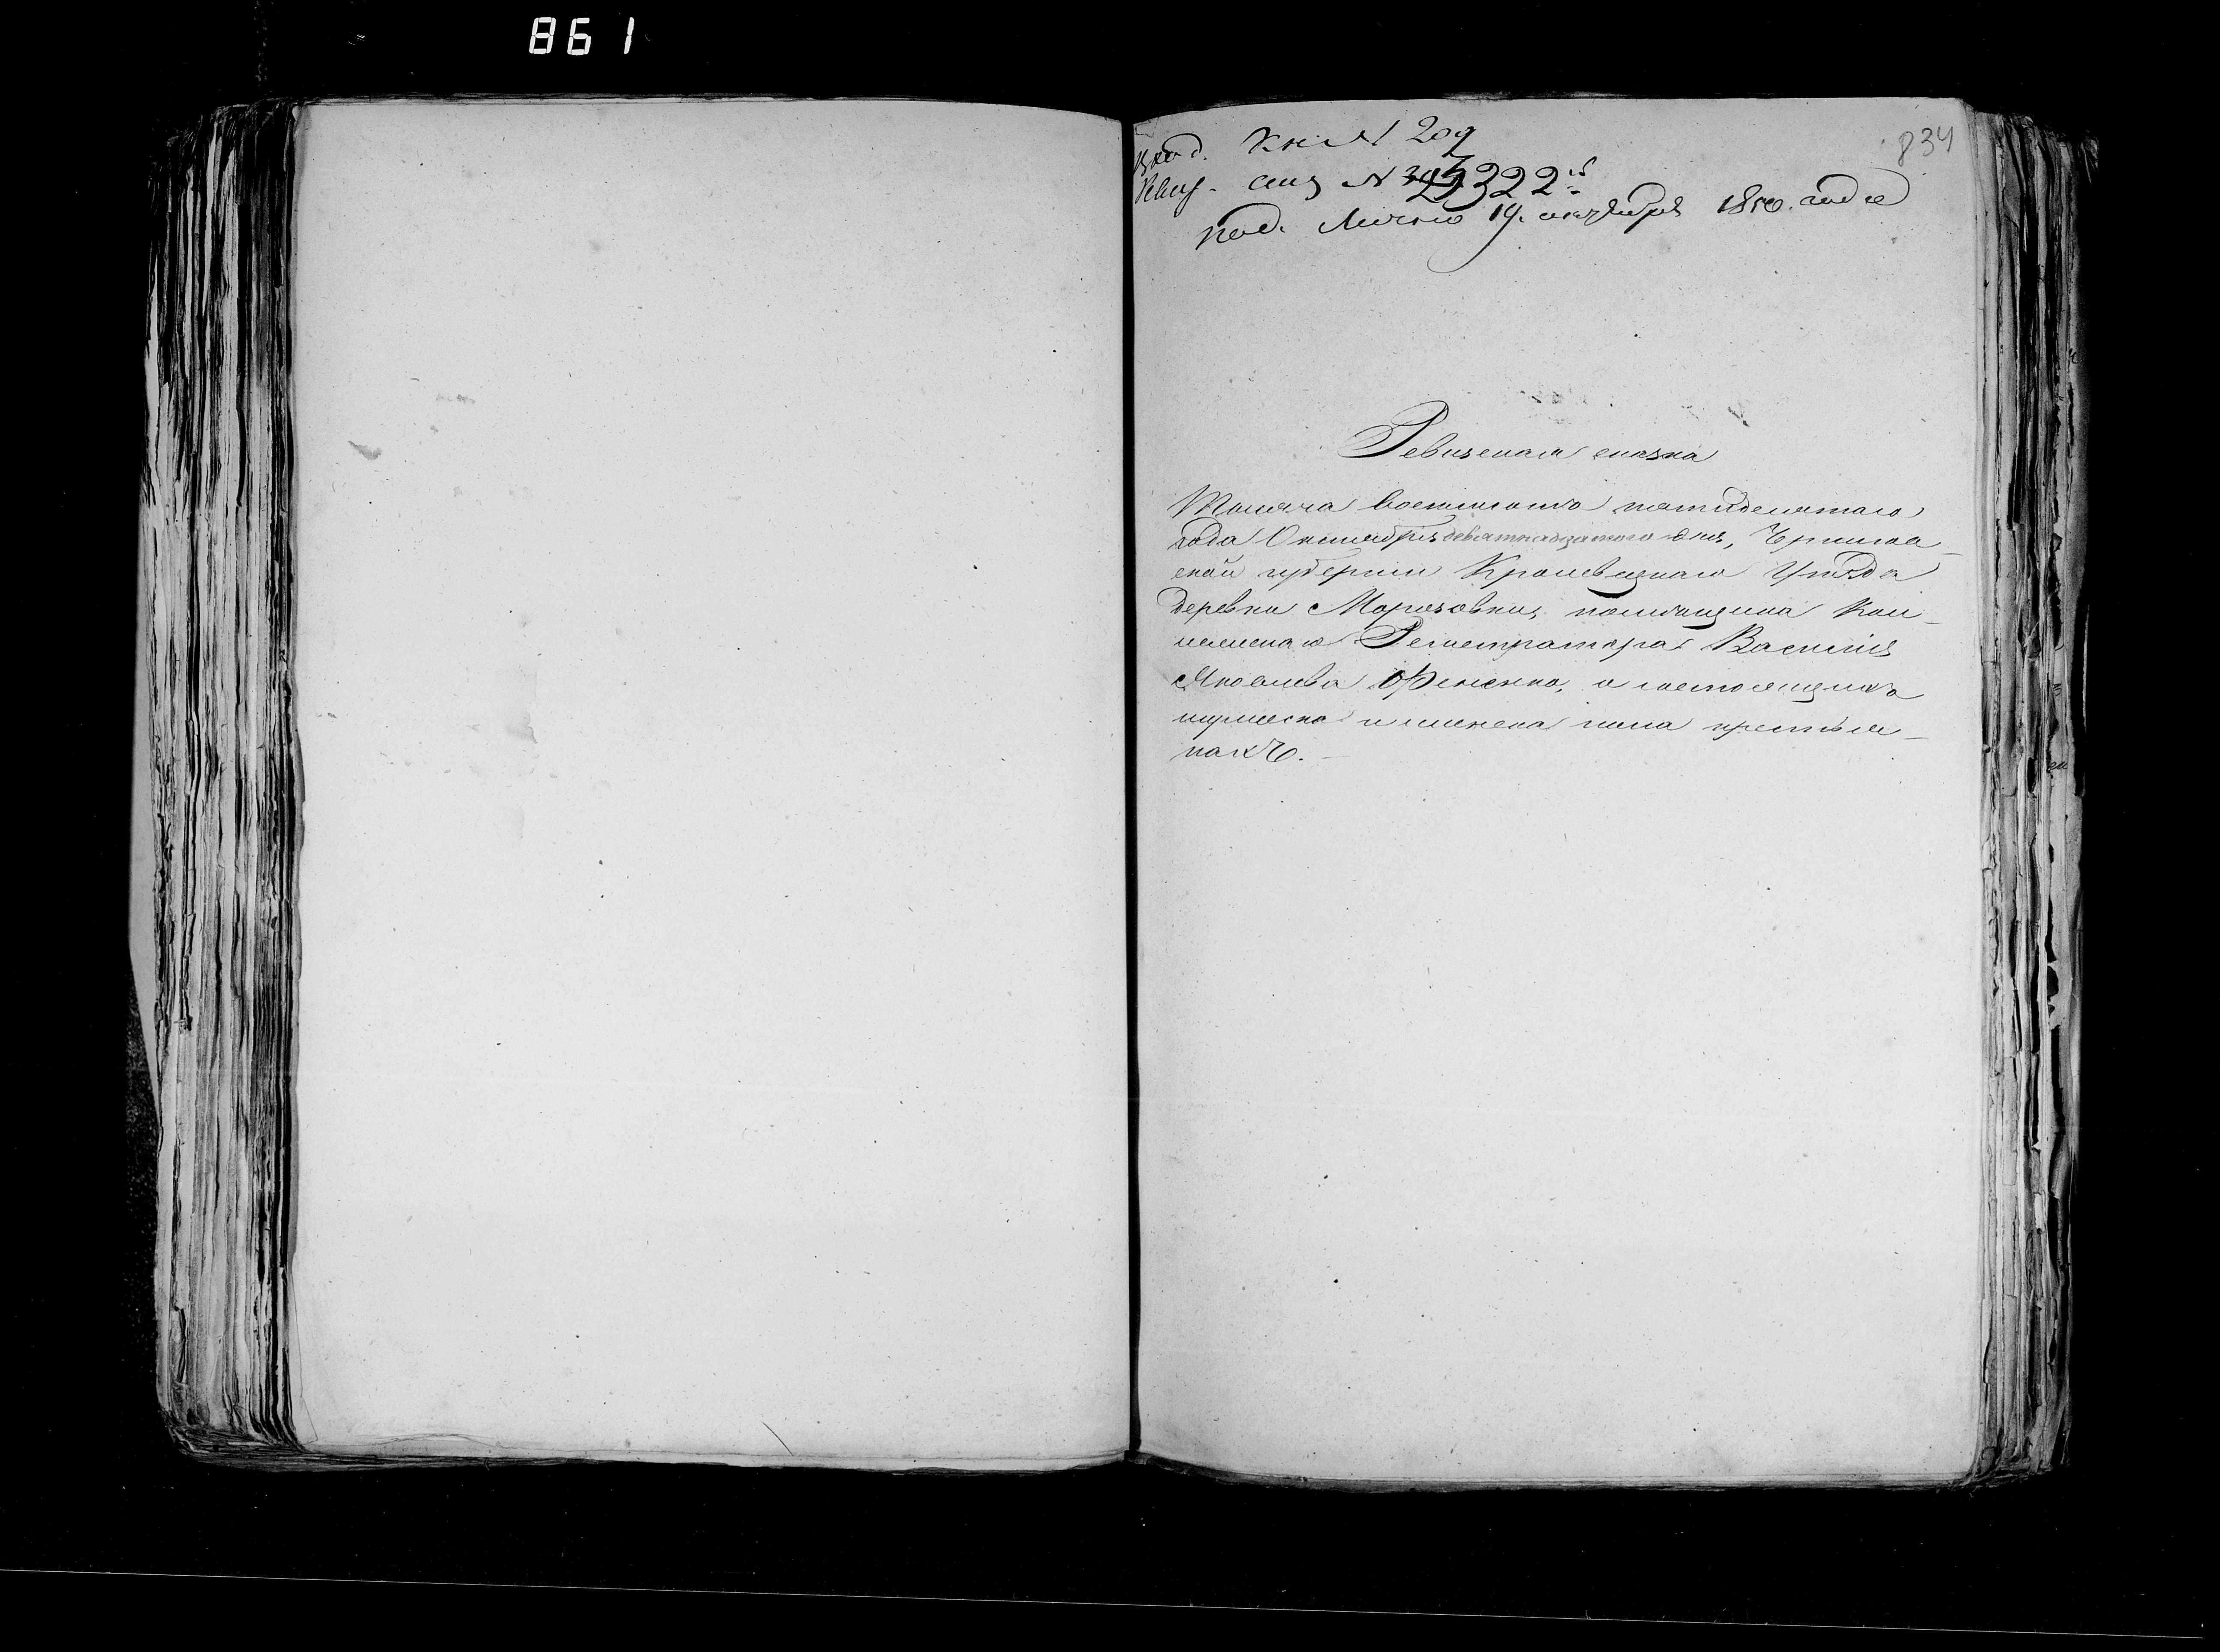 861
834
Вход. Кн. № 209
№ 322
под. Лично 19. октября 1850. года
Ревизская сказка
Тысяча восемьсотъ пятидесятаго
года Октября девятнадцатого дня, Чернигов-
ской губернии Кролевецкаго Уезда
деревни Морозовки, помещика Кол-
лежскаго Регистратора Василия
Яковлева Фененко, о состоящихъ
мужеска и женска пола крестья-
нахъ.